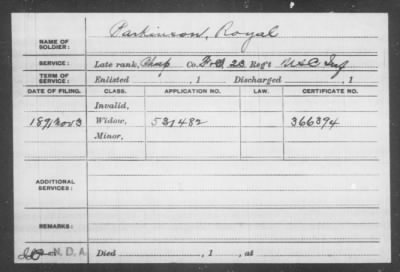 NAME OF SOLDIER: Parkinson, Royal
SERVICE: Late rank, Chap Co. F&S, 23 Reg't U.S.C. Inf
TERM OF SERVICE: Enlisted , 1 Discharged , 1
DATE OF FILING. CLASS. APPLICATION NO. LAW. CERTIFICATE NO.
Invalid,
1891 Nov 3 Widow, 531482 366394
Minor,
ADDITIONAL SERVICES:
REMARKS:
N.D.A. Died , 1 , at